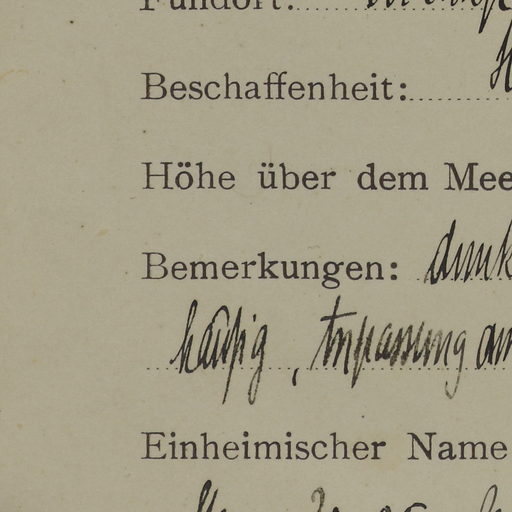 Fundort:
Beschaffenheit:
Höhe über dem Mee
Bemerkungen: dunk
häufig, Anpassung an
Einheimischer Name